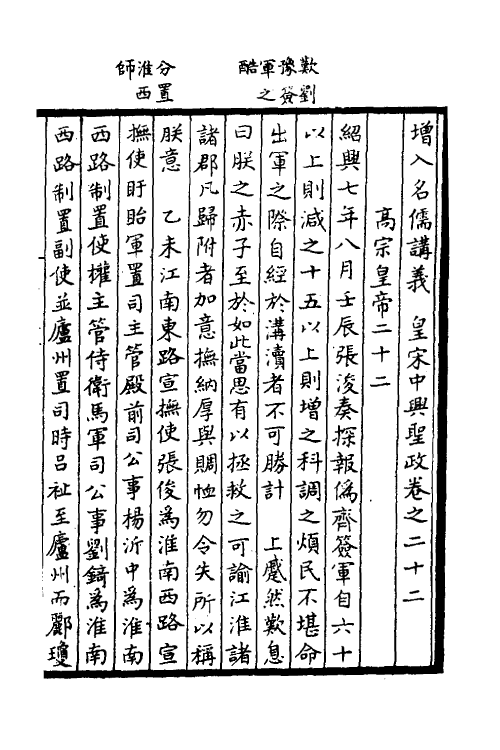 歎劉
豫簽
軍之
酷
分置
淮西
師
增入名儒講義　皇宋中興聖政卷之二十二
高宗皇帝二十二
紹興七年八月壬辰張浚奏探報偽齊簽軍自六十
以上則減之十五以上則增之科調之煩民不堪命
出軍之際自經於溝瀆者不可勝計　上蹙然歎息
曰朕之赤子至於如此當思有以拯救之可諭江淮諸
諸郡凡歸附者加意撫納厚與賙恤勿令失所以稱
朕意　乙未江南東路宣撫使張俊為淮南西路宣
撫使盱眙軍置司主管殿前司公事楊沂中為淮南
西路制置使權主管侍衛馬軍司公事劉錡為淮南
西路制置副使並廬州置司時呂祉至廬州而酈瓊